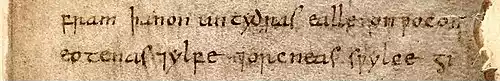 fram þanon un tydras ealle on ƿocon
eotenas ⁊ ylfe ⁊ orcneas sƿylce gi